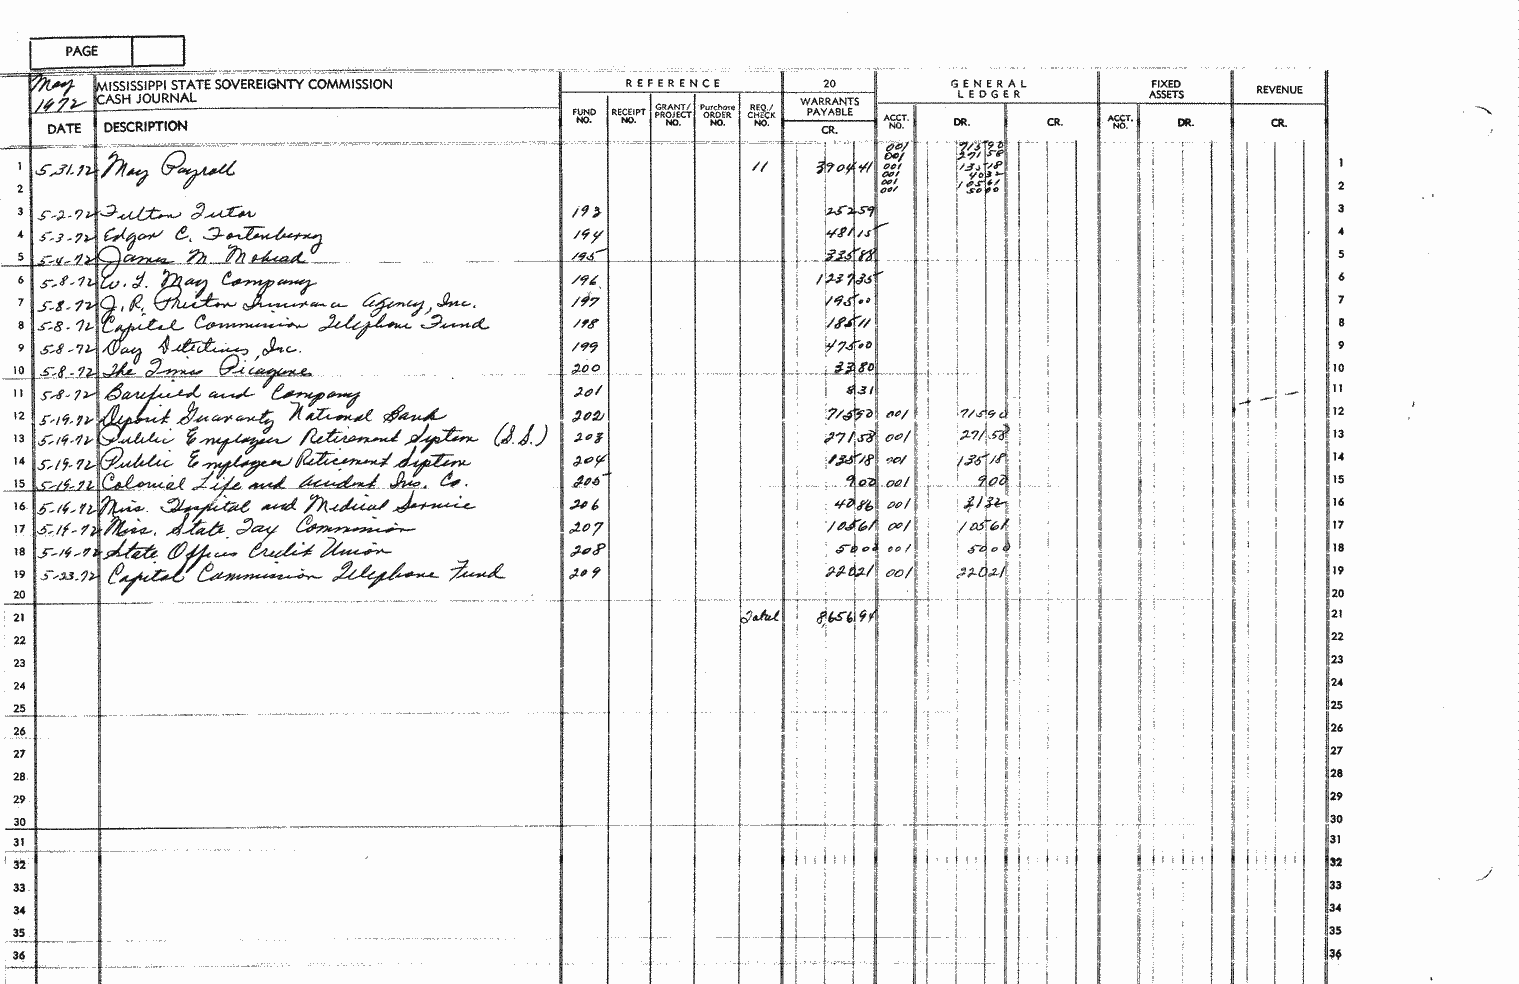 PAGE
May 1972 MISSISSIPPI STATE SOVEREIGNTY COMMISSION
CASH JOURNAL
REFERENCE 20 GENERAL LEDGER FIXED ASSETS REVENUE
DATE DESCRIPTION FUND NO. RECEIPT NO. GRANT/PROJECT NO. Purchase ORDER NO. REQ./CHECK NO. WARRANTS PAYABLE CR. ACCT. NO. DR. CR. ACCT. NO. DR. CR.
001 715 90
001 271 58
1 5-31-72 May Payroll 11 3904 41 001 135 18 1
001 40 32
2 001 105 61 2
001 50 00
3 5-2-72 Fulton Tutor 193 252 59 3
4 5-3-72 Edgar C. Fortenberry 194 481 15 4
5 5-4-72 James M. Mohead 195 335 88 5
6 5-8-72 W. L. May Company 196 1237 35 6
7 5-8-72 J. R. Preston Insurance Agency, Inc. 197 195 00 7
8 5-8-72 Capital Commission Telephone Fund 198 185 11 8
9 5-8-72 Day Detectives, Inc. 199 475 00 9
10 5-8-72 The Times Picayune 200 33 80 10
11 5-8-72 Barefield and Company 201 8 31 11
12 5-19-72 Deposit Guaranty National Bank 202 715 90 001 715 90 12
13 5-19-72 Public Employees Retirement System (S.S.) 203 271 58 001 271 58 13
14 5-19-72 Public Employees Retirement System 204 135 18 001 135 18 14
15 5-19-72 Colonial Life and Accident Ins. Co. 205 9 00 001 9 00 15
16 5-19-72 Miss. Hospital and Medical Service 206 40 86 001 31 32 16
17 5-19-72 Miss. State Tax Commission 207 105 61 001 105 61 17
18 5-19-72 State Offices Credit Union 208 50 00 001 50 00 18
19 5-23-72 Capital Commission Telephone Fund 209 220 21 001 220 21 19
20 20
21 Total 8,656 94 21
22 22
23 23
24 24
25 25
26 26
27 27
28 28
29 29
30 30
31 31
32 32
33 33
34 34
35 35
36 36